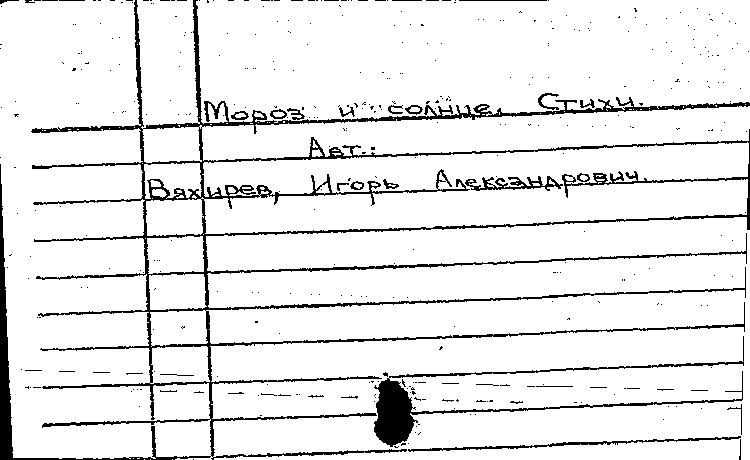 Мороз и солнце, Стихи.
Авт.:
Вяхирев, Игорь Александрович.